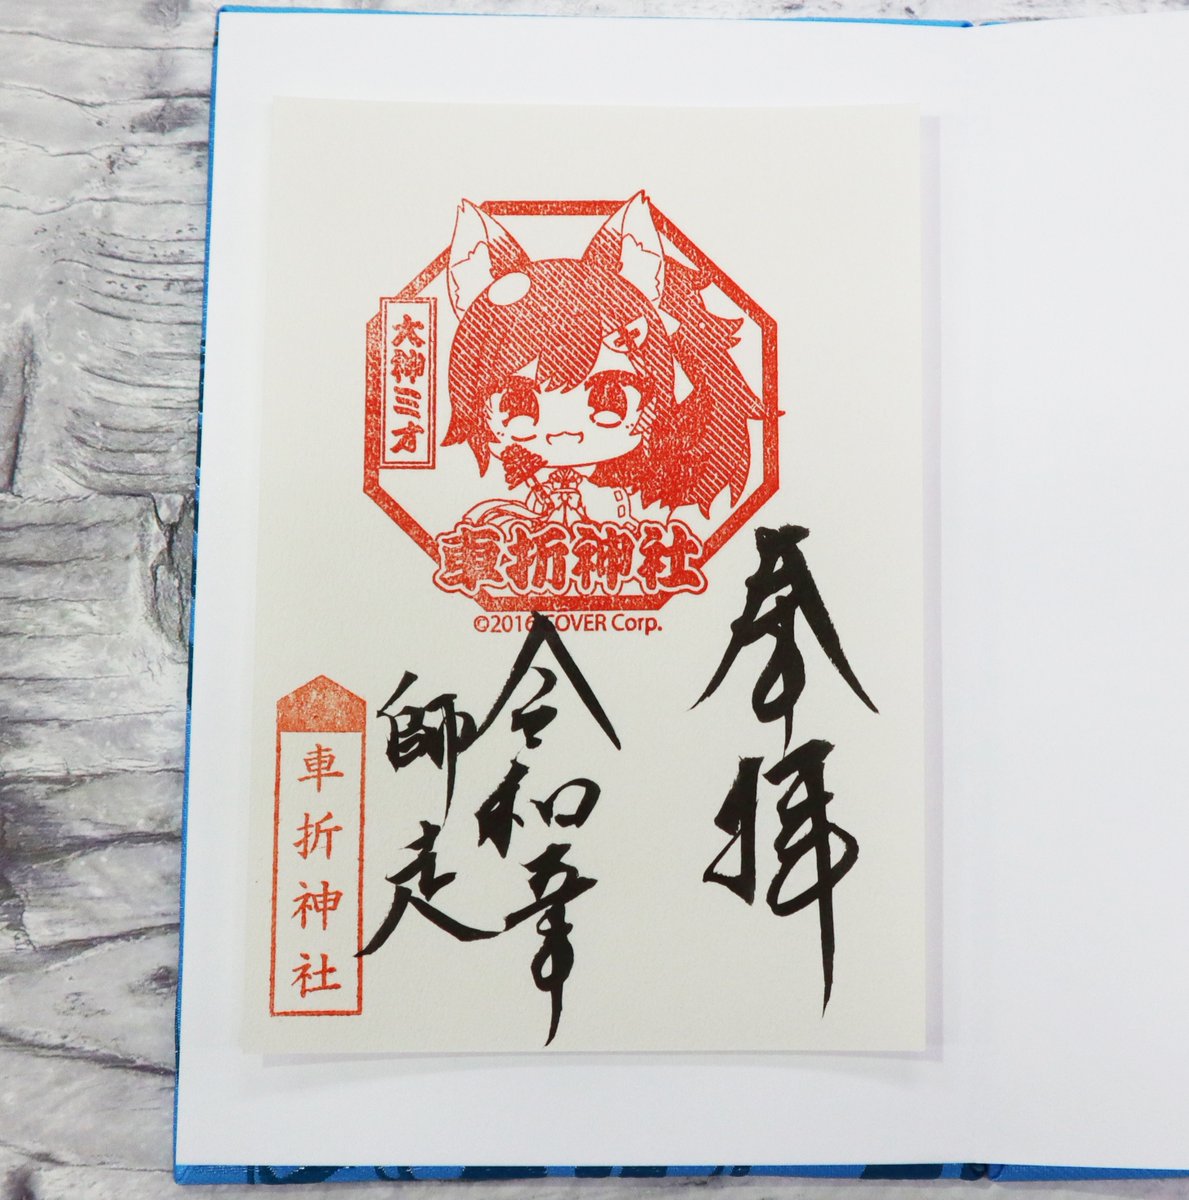 大神ミオ
車折神社
©2016 COVER Corp.
奉拝
令和五年
師走
車折神社